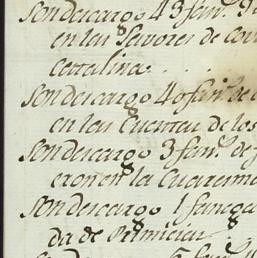 Son descargo 43 fan.s 9
en las Lavores de
Cattalina.
Son descargo 40 fan.s de
en las Cuentas de los
Son descargo 3 fan.s de
eron en la Cuaresma
Son descargo 1 fanega
da de Primicias.